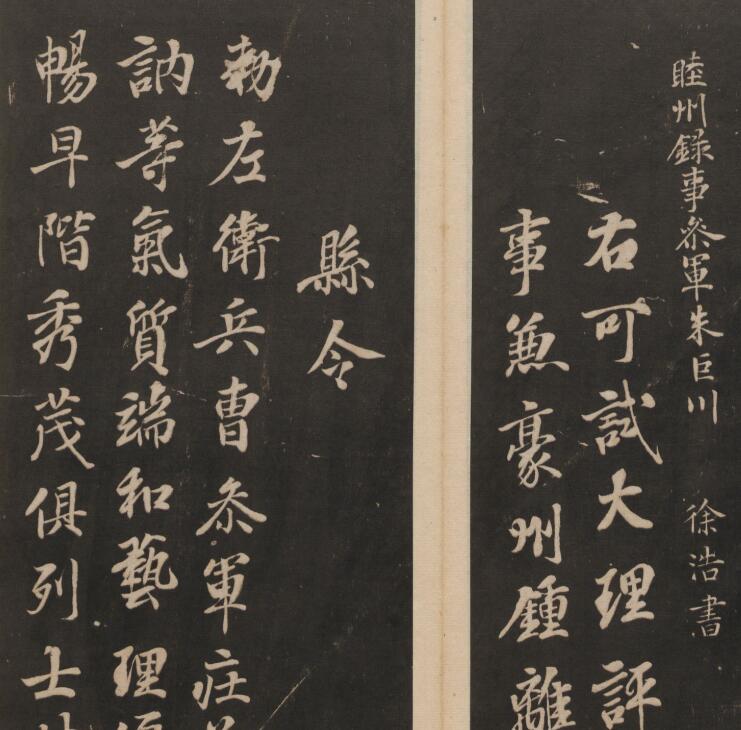 睦州録事叅軍朱巨川 徐浩書
右可試大理評
事兼豪州鍾離
縣令
勑左衛兵曹叅軍莊
訥等氣質端和藝理
暢早階秀茂俱列士